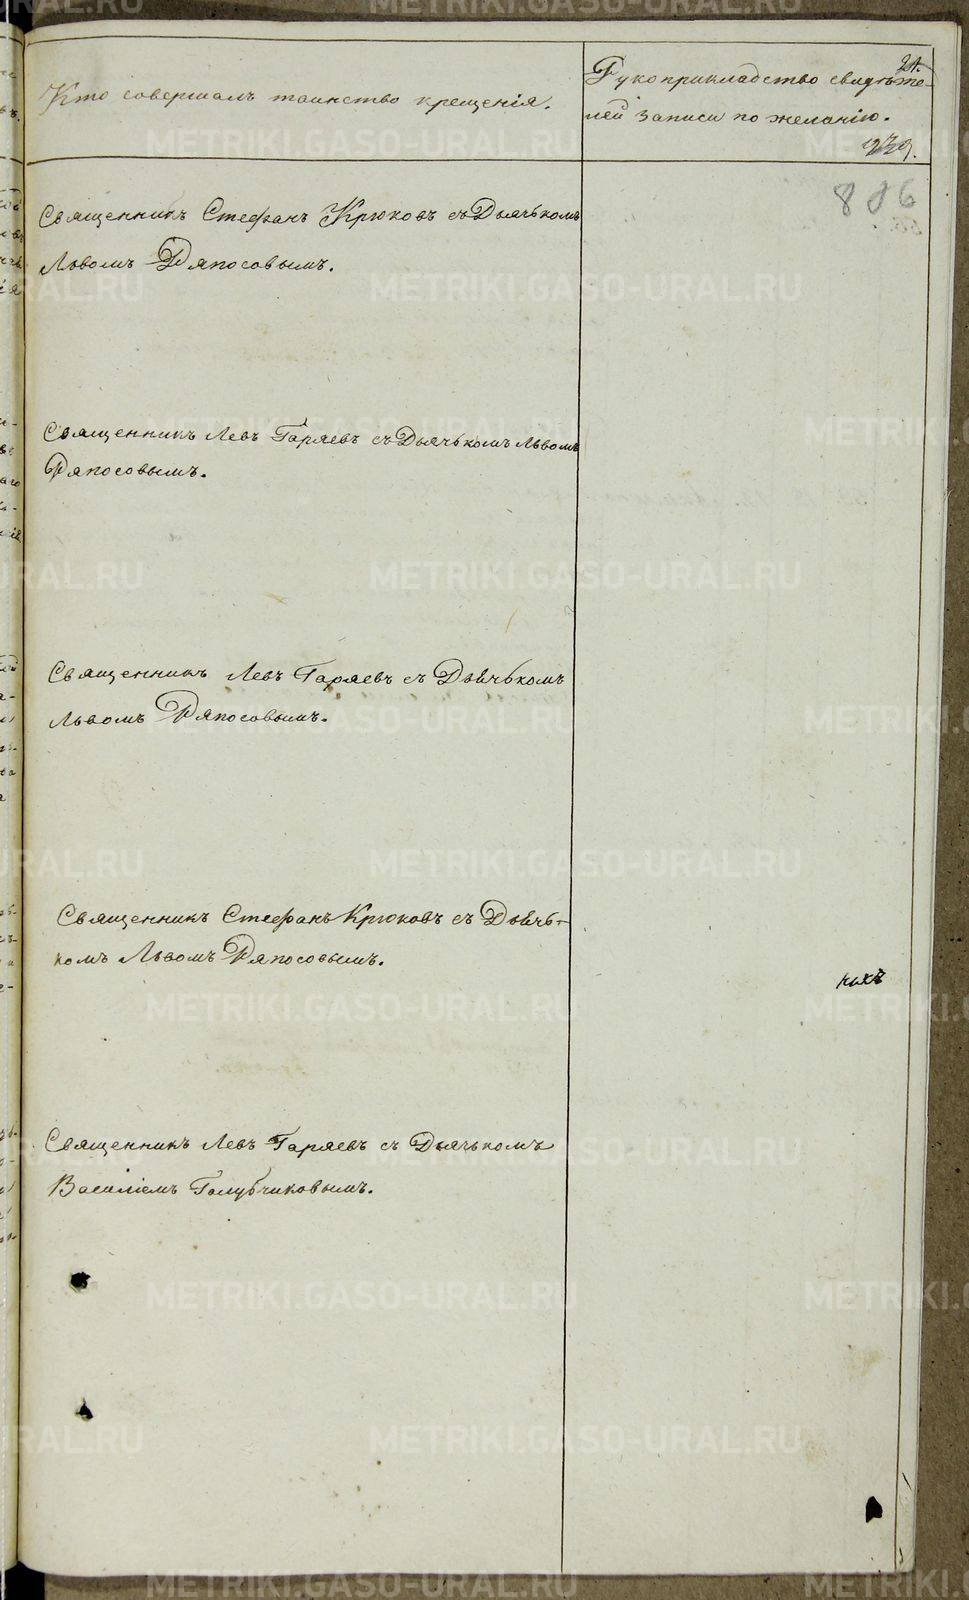 Кто совершалъ таинство крещенія.
Рукоприкладство свидѣте-
лей записи по желанію.
24.
239.
886
Священникъ Стефанъ Крюковъ съ Дьячькомъ
Львомъ Ряпосовымъ.
Священникъ Левъ Гаряевъ съ Дьячькомъ Львомъ
Ряпосовымъ.
Священникъ Левъ Гаряевъ съ Дьячькомъ
Львомъ Ряпосовымъ.
Священникъ Стефанъ Крюковъ съ Дьячь-
комъ Львомъ Ряпосовымъ.
ныхъ
Священникъ Левъ Гаряевъ съ Дьячькомъ
Василіемъ Голубчиковымъ.
METRIKI.GASO-URAL.RU